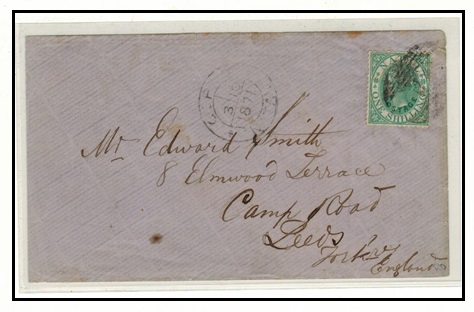 NATAL
ONE SHILLING
1871
Mr Edward Smith
8 Elmwood Terrace
Camp Road
Leeds
England